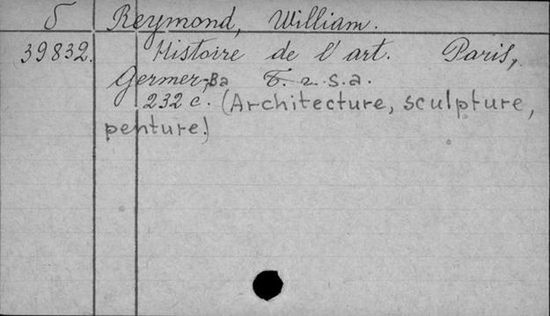 б Reymond, William.
39832. Histoire de l'art. Paris,
Germer-Ba s.a.
232 с. (Architecture, sculpture,
penture.)